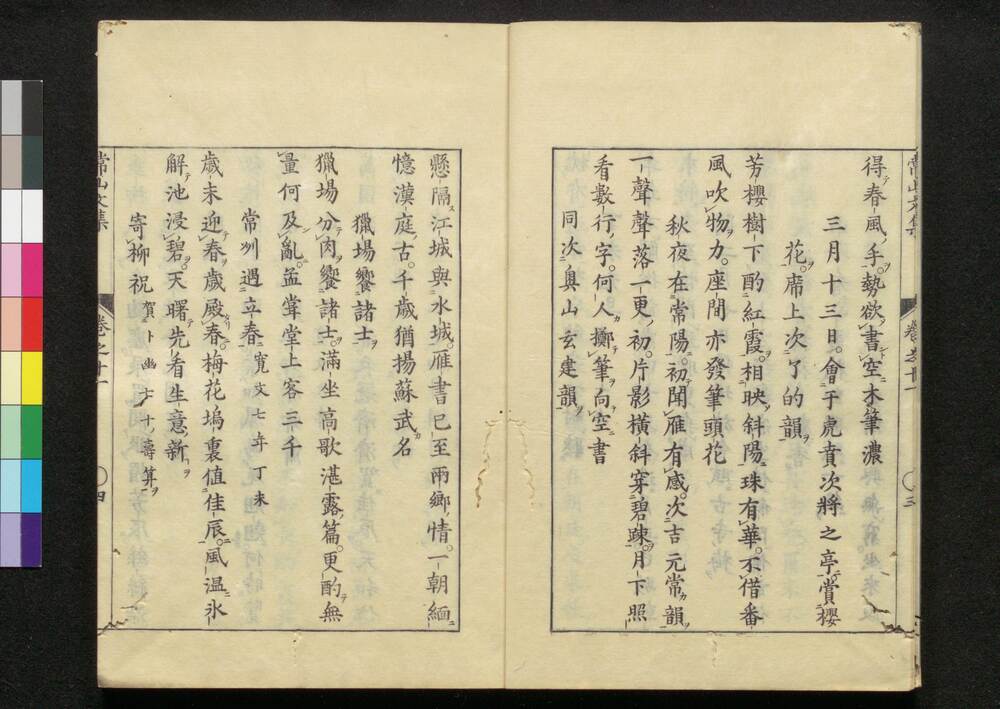 得春風手勢欲書空木筆濃
三月十三日會于虎賁次將之亭賞櫻
花席上次了的韻
芳櫻樹下酌紅霞相映斜陽珠有華不借番
風吹物力座間亦發筆頭花
秋夜在常陽初聞雁有感次吉元常韻
一聲聲落一更初片影橫斜穿碧踈月下照
看數行字何人擲筆向空書
同次奥山玄建韻
常山文集
卷之十一
三
懸隔江城與水城雁書已至兩鄉情一朝緬
憶漢庭古千歲猶揚蘇武名
獵場饗諸士
獵場分肉饗諸士滿坐高歌湛露篇更酌無
量何及亂孟甞堂上客三千
常州遇立春寬文七年丁未
歲未迎春歲殿春梅花塢裏值佳辰風温氷
解池浸碧天曙先看生意新
寄柳祝賀卜幽六十壽算
常山文集
卷之十一
四